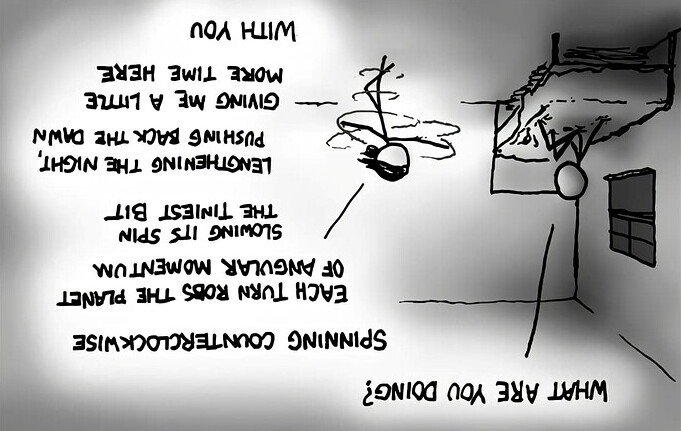 WHAT ARE YOU DOING?
SPINNING COUNTERCLOCKWISE
EACH TURN ROBS THE PLANET
OF ANGULAR MOMENTUM
SLOWING ITS SPIN
THE TINIEST BIT
LENGTHENING THE NIGHT,
PUSHING BACK THE DAWN
GIVING ME A LITTLE
MORE TIME HERE
WITH YOU